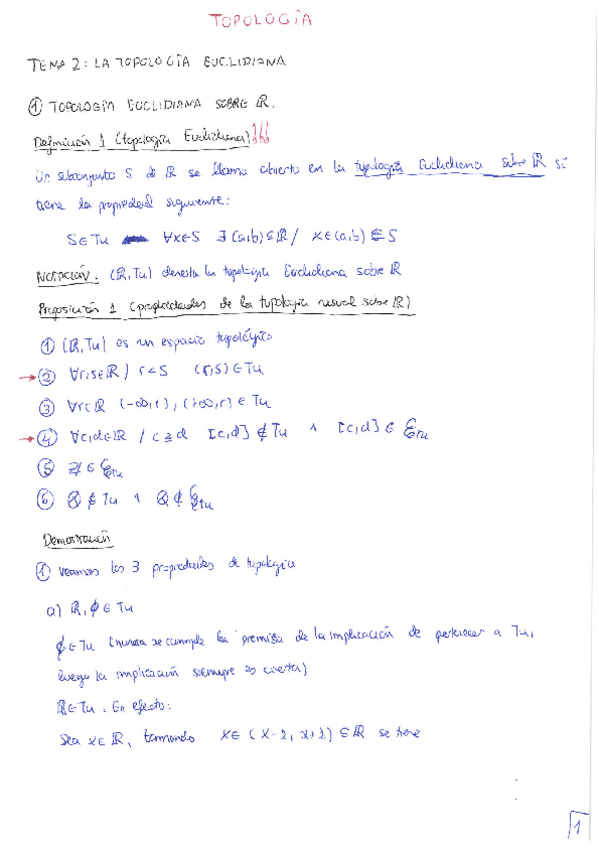 TOPOLOGÍA
TEMA 2: LA TOPOLOGÍA EUCLIDIANA
① TOPOLOGÍA EUCLIDIANA SOBRE ℝ.
Definición 1 (topología Euclidiana)!!!
Un subconjunto S de ℝ se llama abierto en la topología Euclidiana sobre ℝ si
tiene la propiedad siguiente:
S∈Tu ∀x∈S ∃(a,b)⊆ℝ / x∈(a,b)⊆S
NOTACIÓN. (ℝ,Tu) denota la topología Euclidiana sobre ℝ
Proposición 1 (propiedades de la topología usual sobre ℝ)
① (ℝ,Tu) es un espacio topológico
→ ② ∀r,s∈ℝ / r<s (r,s)∈Tu
③ ∀r∈ℝ (-∞,r), (+∞,r)∈Tu
→ ④ ∀c,d∈ℝ / c≥d [c,d]∉Tu ∧ [c,d]∈ℰTu
⑤ ℤ∈ℰTu
⑥ ℚ∉Tu ∧ ℚ∉ℰTu
Demostración
① Veamos las 3 propiedades de topología
a) ℝ,∅∈Tu
∅∈Tu (nunca se cumple la premisa de la implicación de pertenecer a Tu,
luego la implicación siempre es cierta)
ℝ∈Tu. En efecto:
Sea x∈ℝ, tomando x∈(x-1, x+1)⊆ℝ se tiene
1